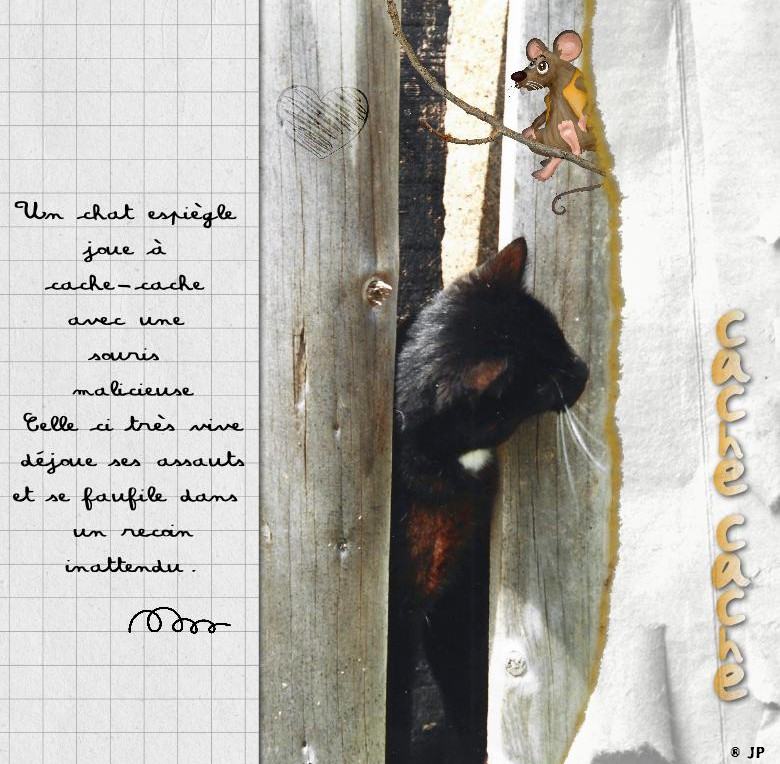 Un chat espiègle
joue à
cache-cache
avec une
souris
malicieuse
Celle ci très vive
déjoue ses assauts
et se faufile dans
un recoin
inattendu.
cache cache
® JP